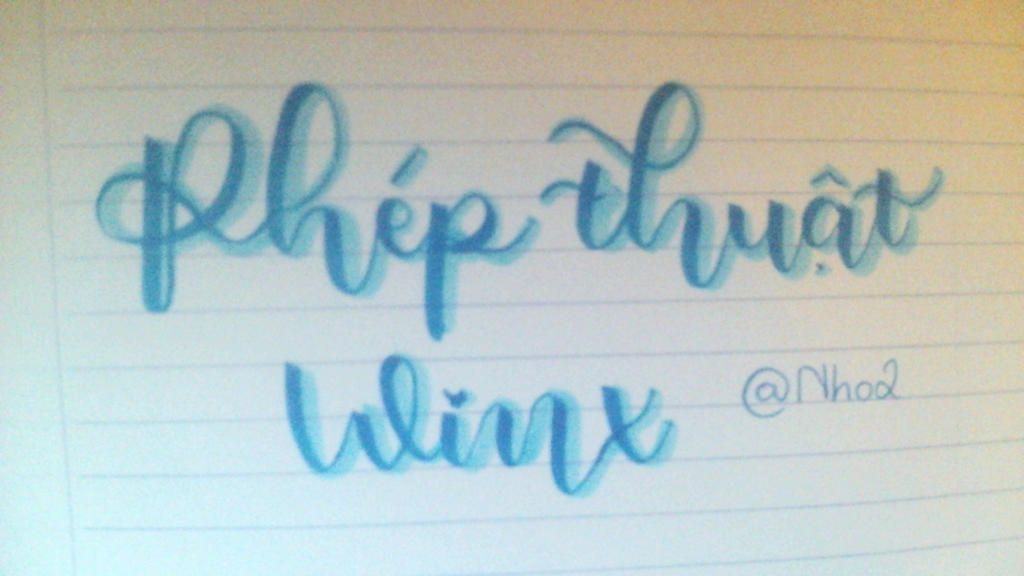 Phép thuật
Winx
@Nho2